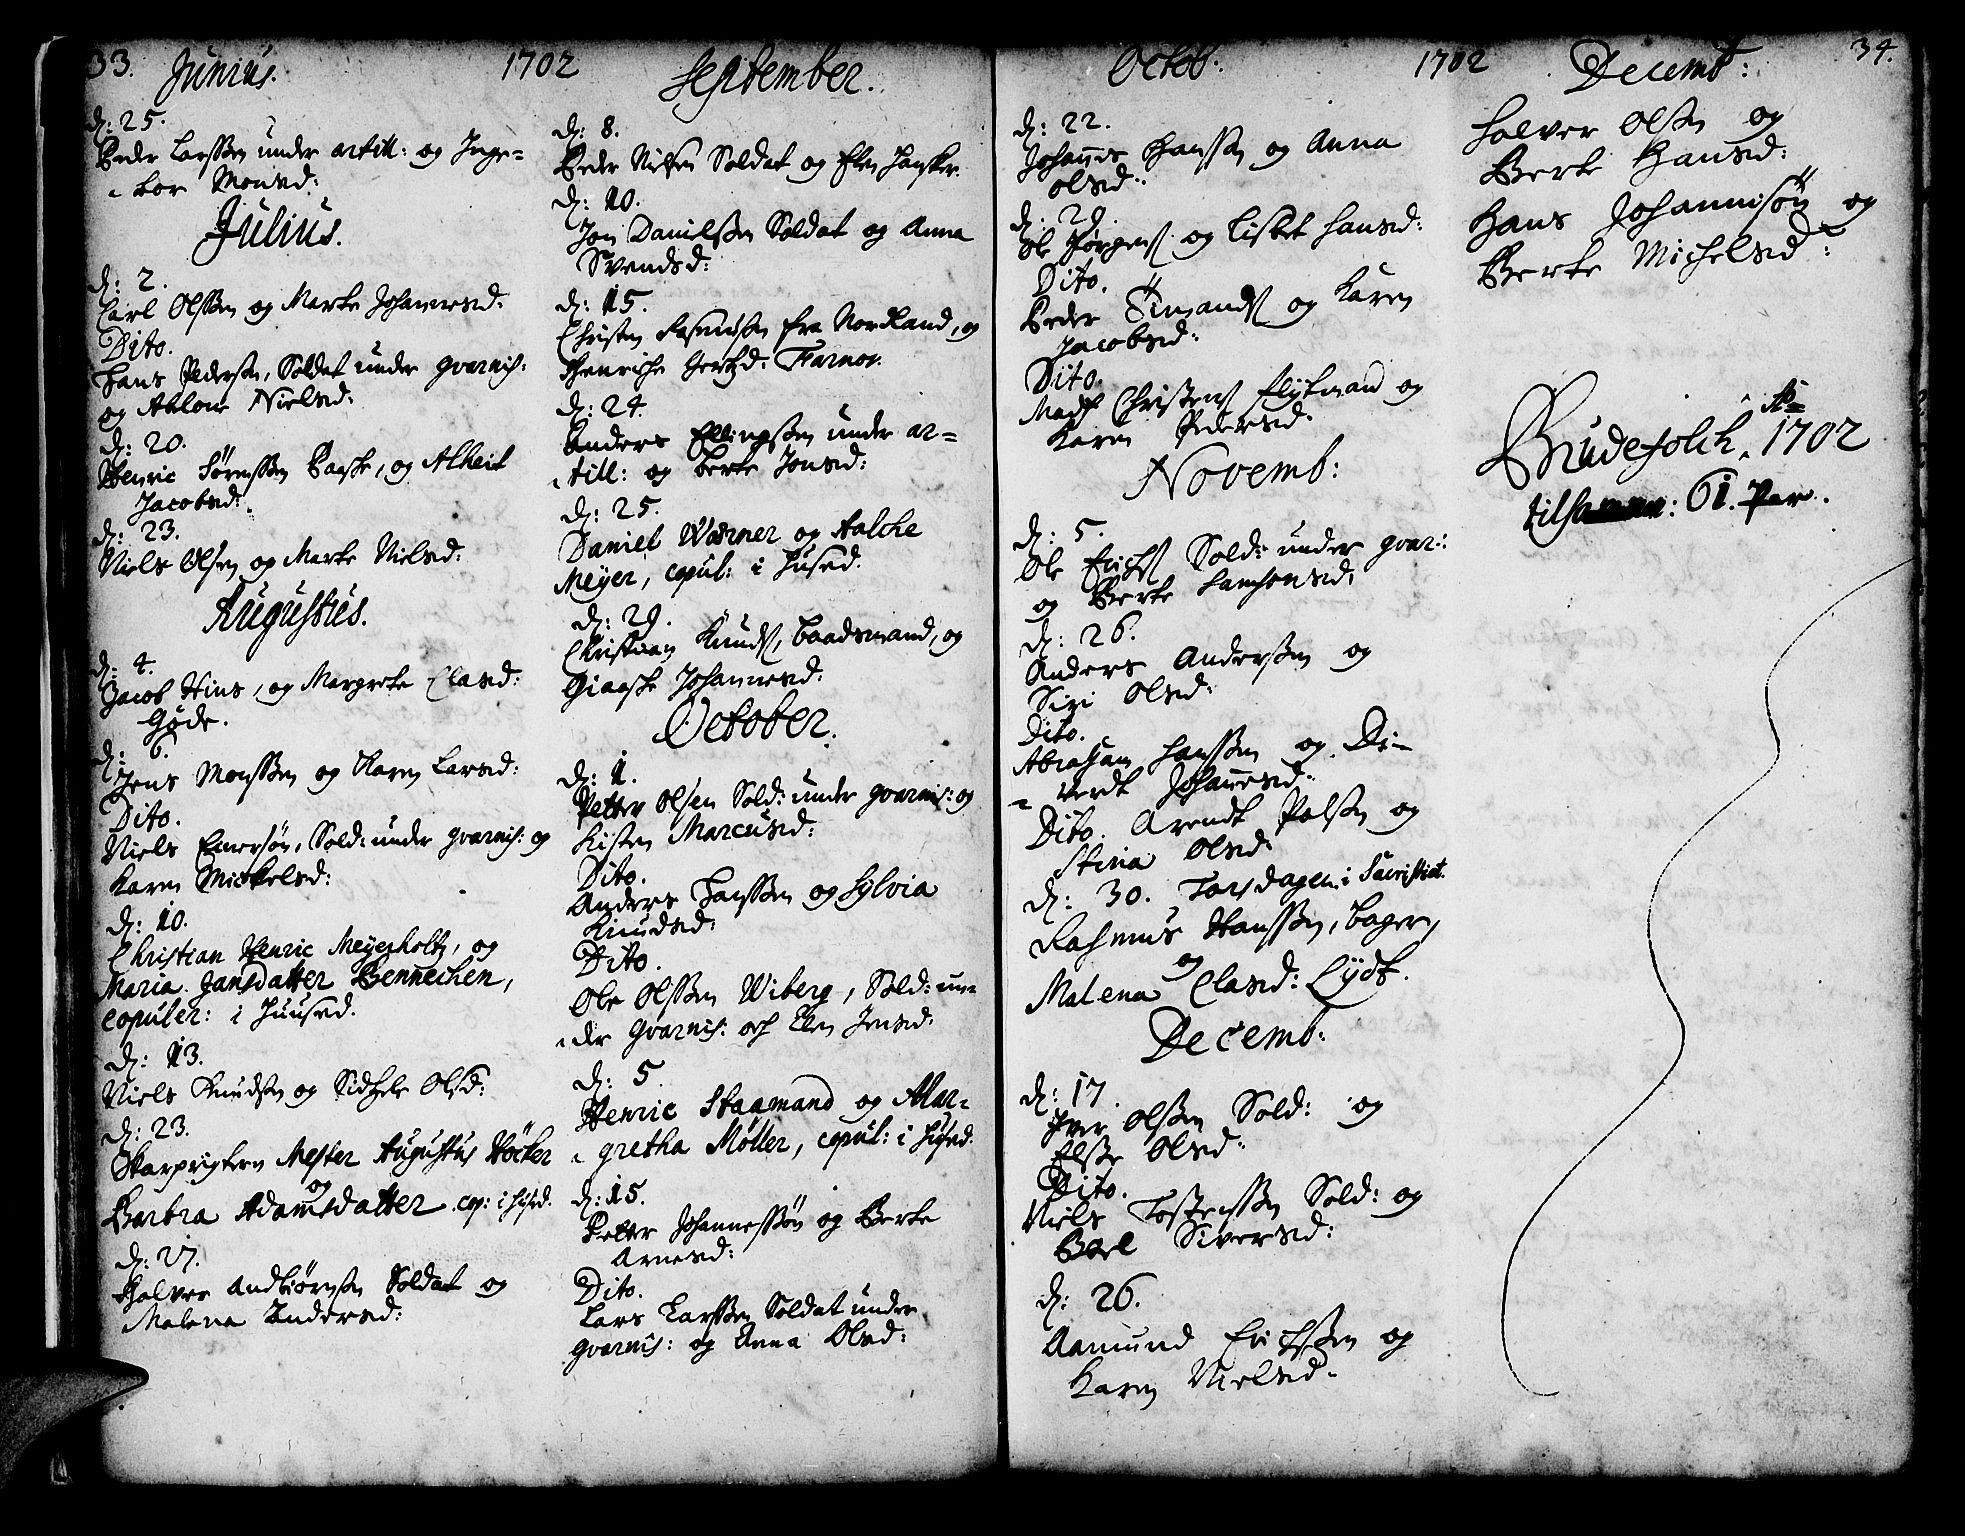 33. Junius. 1702
d: 25.
Peder Larssen under artill: og Inge=
=bor Monsd:
Julius.
d: 2.
Carl Olssen og Marte Johannesd:
Dito.
Hans Pedersen, Soldat under gvarnis:
og Ahlow Nielsd:
d: 20.
Henric Sørenssen Paaske, og Alheit
Jacobsd:
d: 23.
Niels Olsen og Marte Nielsd:
Augustus.
d: 4.
Jacob Hins, og Margrete Clasd:
Gøde.
d: 6.
Jens Monssen og Karen Larsd:
Dito.
Niels Einersøn, Sold: under gvarnis: og
Karen Mickelsd:
d: 10.
Christian Henric Meyerholtz, og
Maria Jansdatter Bennechen,
copuler: i Huused.
d: 13.
Niels Knudsen og Sidsele Olsd:
d: 23.
Skarprigtern Mester Augustus Höcker
og
Barbra Adamsdatter cop: i Hused.
d: 27.
Halvor Andbiørnsen Soldat og
Malena Andersd:
September.
d: 8.
Peder Nielsen Soldat og Elen
d: 10.
Jon Danielssen Soldat og Anna
Svendsd:
d: 15.
Christen Rasmussen fra Nordland, og
Henriche Farnov.
d: 24.
Anders Ellingssen under ar=
=till: og Berte Jonsd:
d: 25.
Daniel Wærner og Aalche
Meyer, copul: i Hused.
d: 29.
Christian Knuds, Baadsmand, og
Giaske Johannesd:
October.
d: 1.
Petter Olsen Sold: under gvarnis: og
Kisten Marcusd:
Dito.
Anders Hanssen og Sylvia
Knudsd:
Dito.
Ole Olssen Wiberg, Sold: un=
=der gvarnis: och Elen Jensd:
d: 5.
Henric Staamand og Mar=
=gretha Møller, copul: i Hused.
d: 15.
Peter Johannessøn og Berte
Arnesd:
Dito.
Lars Larssen Soldat under
gvarnis: og Anna Olsd:
Octob: 1702 Decemb: 34.
d: 22.
Johannes Hanssen og Anna
Olsd:
d: 29.
Ole Jørgens og Lisbet Hansd:
Dito.
Peder Simands og Karen
Jacobsd:
Dito.
Mads Christens flytmand og
Karen Pedersd:
Novemb:
d: 5.
Ole Erichs Sold: under gvar:
og Berte Samsonsd:
d: 26.
Anders Anderssen og
Sizi Olsd:
Dito.
Abraham Hanssen og Di=
=verdt Johannesd:
Dito. Arendt Polsen og
Stina Olsd:
d: 30. Torsdagen i Sacristiet.
Rasmus Hanssen, Bager,
og
Malena Clasd: Lydt.
Decemb:
d: 17.
Iver Olssen Sold: og
Else Olsd:
Dito.
Niels Tostenssen Sold: og
Boel Siversd:
d: 26.
Aamund Erichssen og
Karen Nielsd:
Halver Olsen og
Berte Hansd:
Hans Johannisøn og
Berte Michelsd:
Brudefolch Ao 1702
tilsammen: 61. Par.